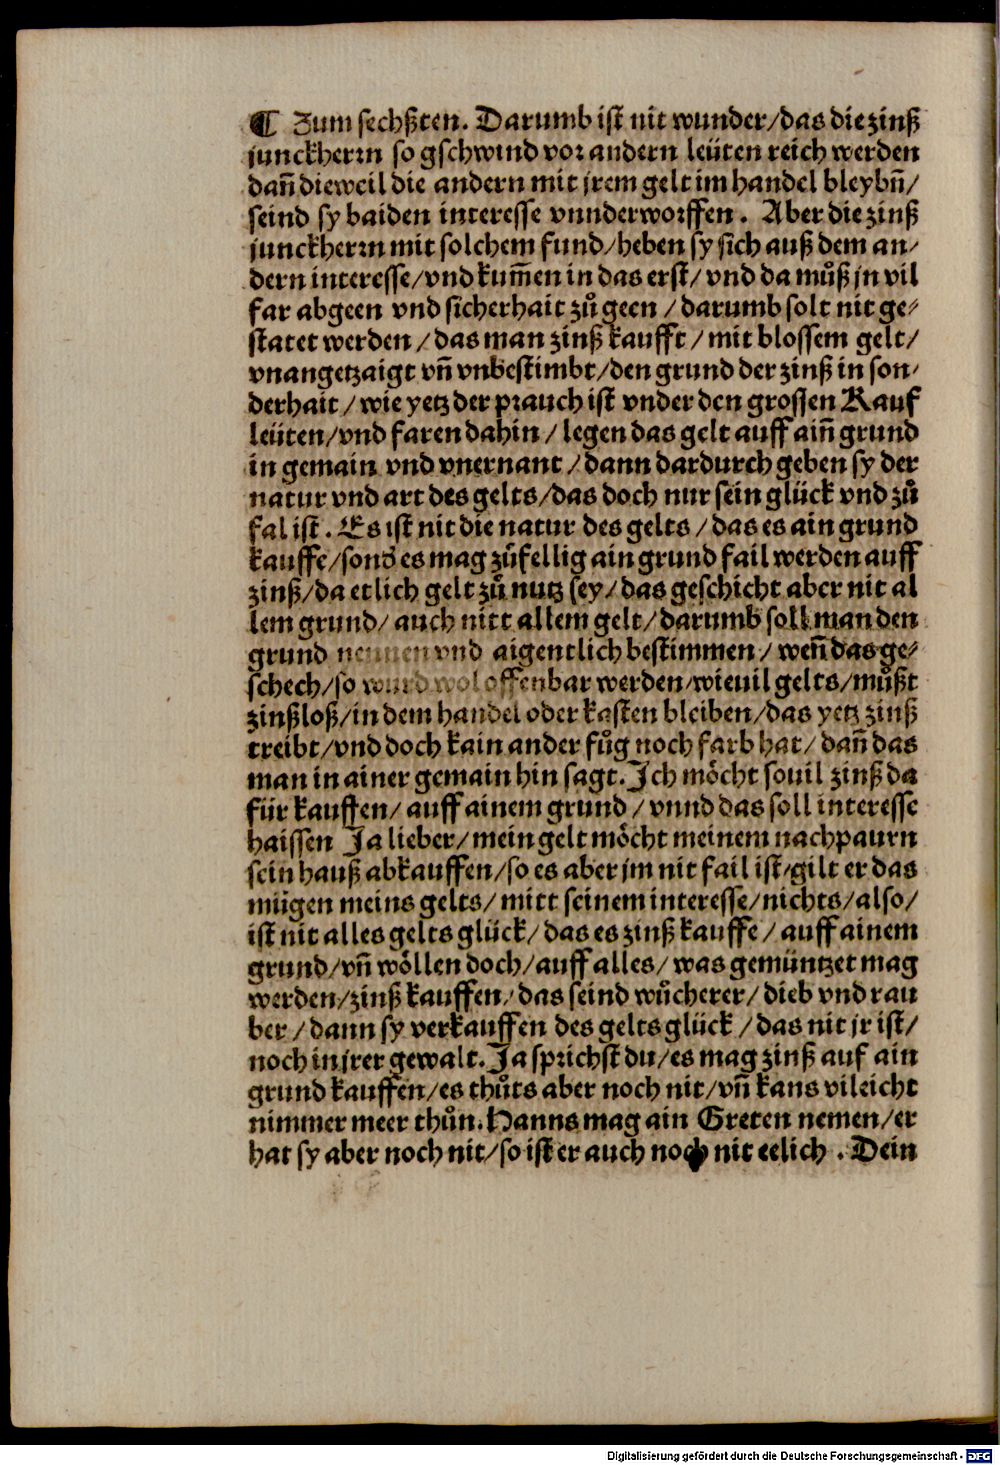 ¶ Zum sechßten. Darumb ist nit wunder/das die zinß
junckherrn so gschwind vor andern leüten reich werden
dañ dieweil die andern mit jrem gelt im handel bleybñ/
seind sy baiden interesse vnnderworffen. Aber die zinß
junckherrn mit solchem fund/heben sy sich auß dem an/
dern interesse/vnd kum̃en in das erst/vnd da můß jn vil
far abgeen vnd sicherhait zů geen/darumb solt nit ge⸗
statet werden/das man zinß kaufft/mit blossem gelt/
vnangetzaigt vñ vnbestimbt/den grund der zinß in son/
derhait/wie yetz der prauch ist vnder den grossen Kauf
leüten/vnd faren dahin/legen das gelt auff aiñ grund
in gemain vnd vnernant/dann dardurch geben sy der
natur vnd art des gelts/das doch nur sein glück vnd zů
fal ist. Es ist nit die natur des gelts/das es ain grund
kauffe/sond̕ es mag zůfellig ain grund fail werden auff
zinß/da etlich gelt zů nutz sey/das geschicht aber nit al
lem grund/auch nitt allem gelt/darumb soll man den
grund nennen vnd aigentlich bestimmen/weñ das ge⸗
schech/so wurd wol offenbar werden/wieuil gelts/můßt
zinßloß/in dem handel oder kasten bleiben/das yetz zinß
treibt/vnd doch kain ander fůg noch farb hat/dañ das
man in ainer gemain hin sagt. Ich möcht souil zinß da
für kauffen/auff ainem grund/vnnd das soll interesse
haissen Ja lieber/mein gelt möcht meinem nachpaurn
sein hauß abkauffen/so es aber jm nit fail ist/gilt er das
mügen meins gelts/mitt seinem interesse/nichts/also/
ist nit alles gelts glück/das es zinß kauffe/auff ainem
grund/vñ wöllen doch/auff alles/was gemüntzet mag
werden/zinß kauffen/das seind wůcherer/dieb vnd rau
ber/dann sy verkauffen des gelts glück/das nit jr ist/
noch in jrer gewalt. Ja sprichst du/es mag zinß auf ain
grund kauffen/es thůts aber noch nit/vñ kans vileicht
nimmer meer thůn. Hanns mag ain Greten nemen/er
hat sy aber noch nit/so ist er auch noch nit eelich. Dein
Digitalisierung gefördert durch die Deutsche Forschungsgemeinschaft - DFG